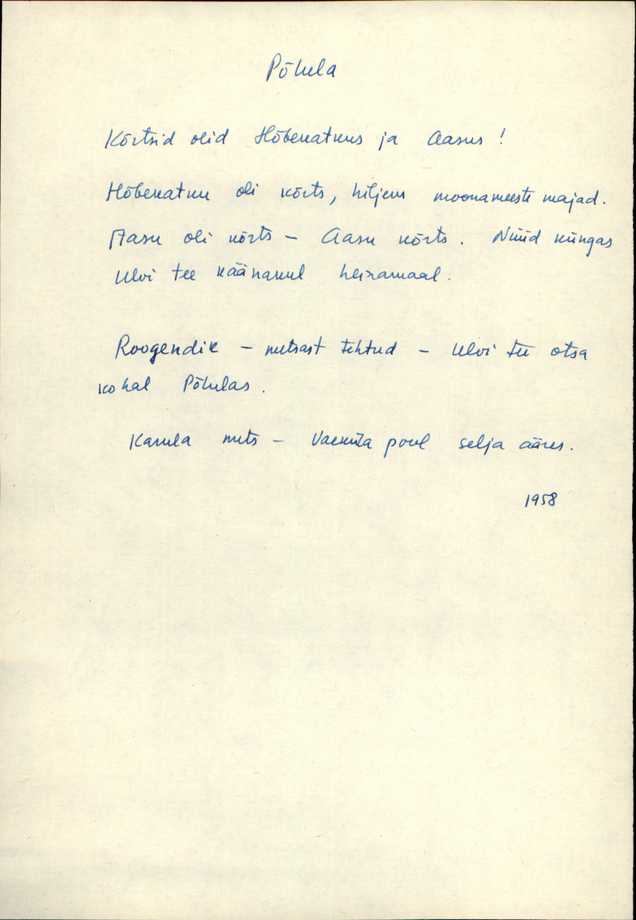 Põhula
Kõrtsid olid Hõbenatuus ja Aasus!
Hõbenatuu oli kõrts, hiljem moonameeste majad.
Aasu oli kõrts – Aasu kõrts. Nüüd küngas
Ulvi tee käänakul heinamaal.
Roogendik – metsast tehtud – Ulvi tee otsa
kohal Põhulas.
Kanula mets – Vaeküla pool selja ääres.
1958